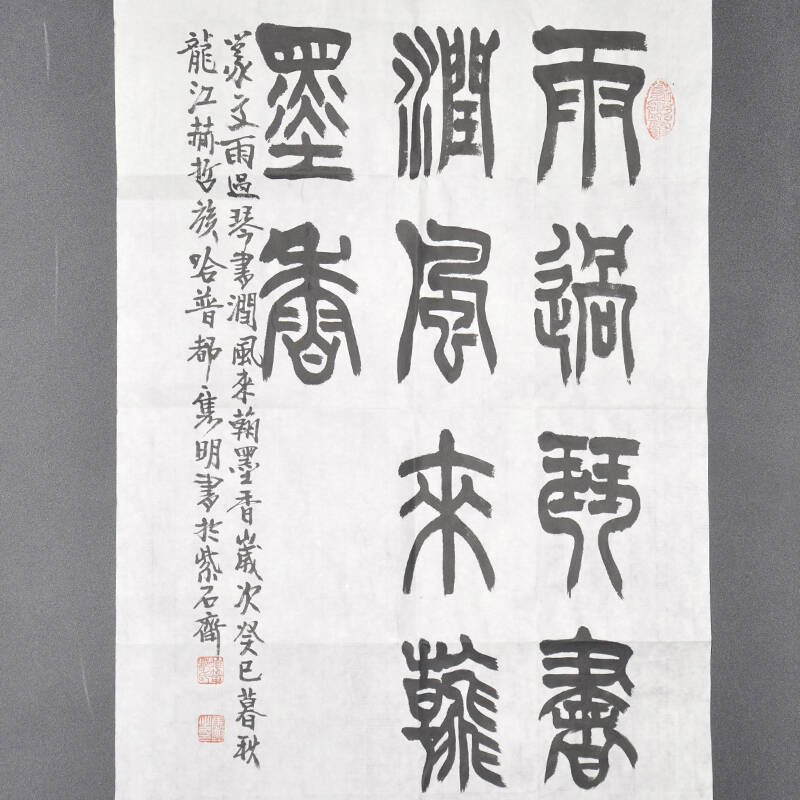 雨過琴書
潤風來翰
墨香
篆文雨過琴書潤風來翰墨香歲次癸巳暮秋
龍江赫哲族哈普都隽明書於紫石齋